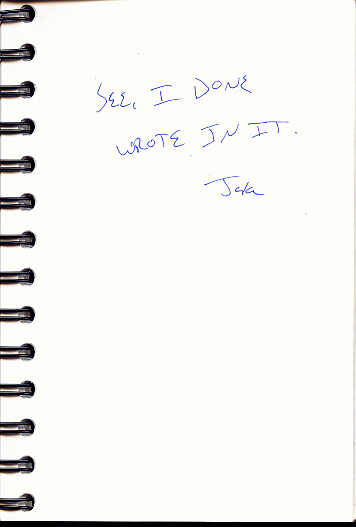 SEE, I DONE
WROTE IN IT.